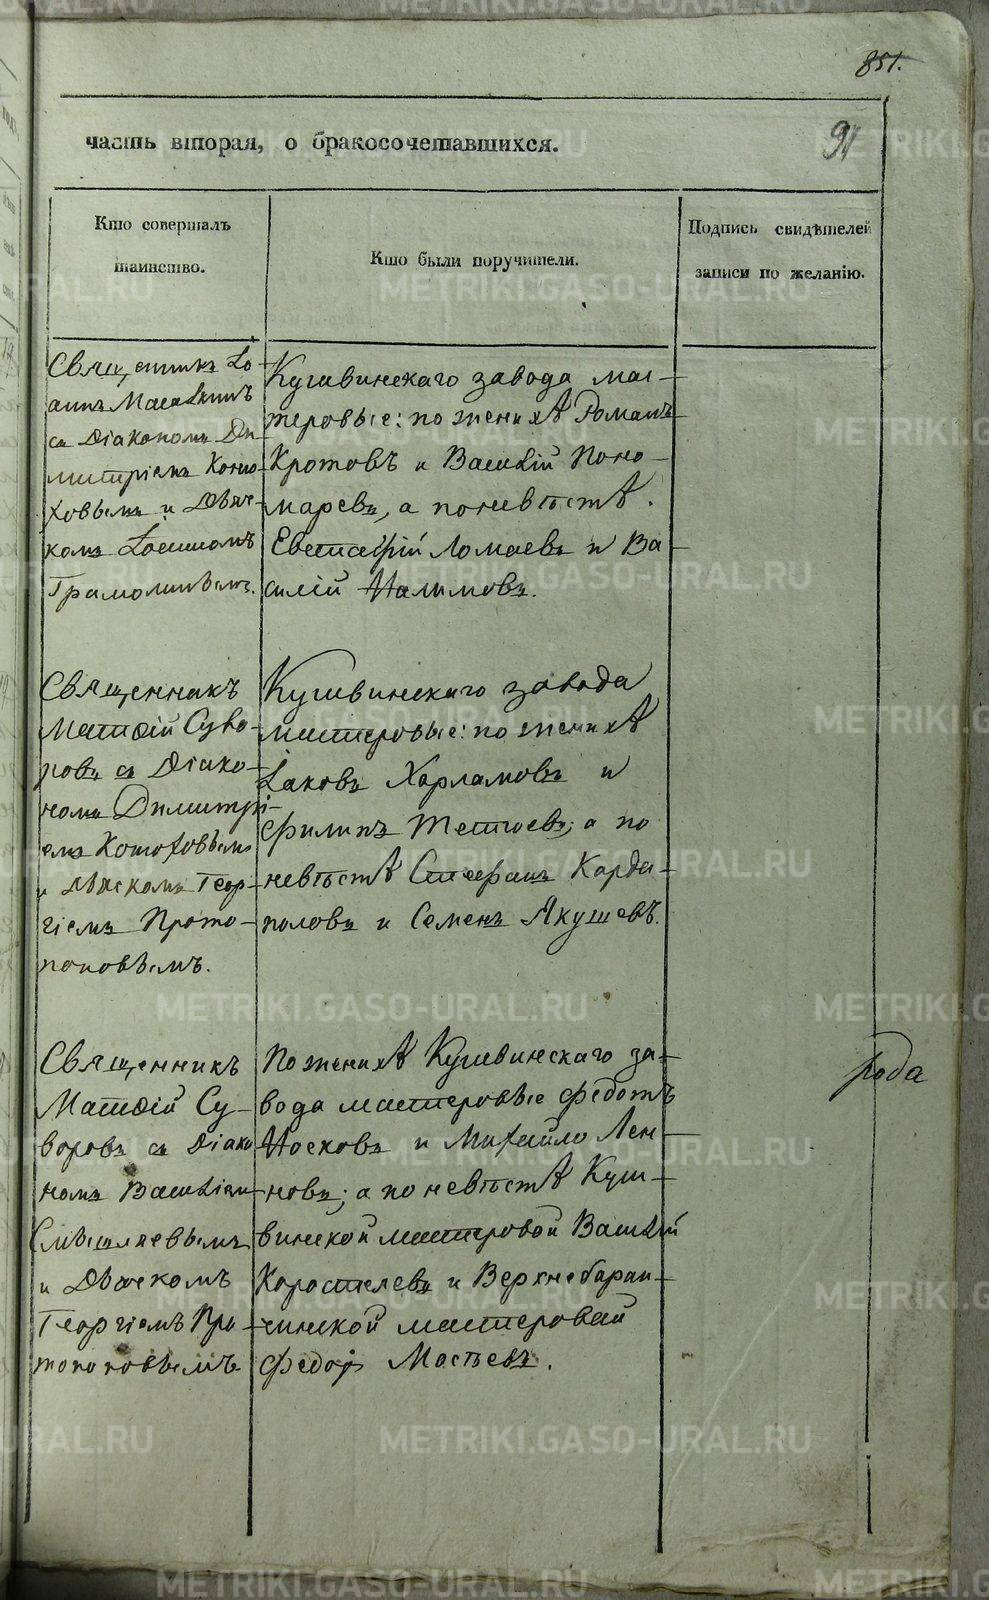 851.
часть вторая, о бракосочетавшихся.
91
Кто совершалъ
таинство.
Кто были поручители.
Подпись свидѣтелей
записи по желанію.
Священникъ Іо-
аннъ
съ Діакономъ Ди-
митріемъ Коню-
ховымъ и Дьяч-
комъ
Кушвинскаго завода мас-
теровые: по женихѣ Романъ
Кротовъ и Василій Поно-
маревъ, а по невѣстѣ.
Евстафій Ломаевъ и Ва-
силій Налимовъ.
Священникъ
Матѳій Суво-
ровъ съ Діако-
номъ Димитрі-
емъ Конюховымъ
и Дьячкомъ Геор-
гіемъ Прото-
поповымъ.
Кушвинскаго завода
мастеровые: по женихѣ
Іаковъ Харламовъ и
Филипъ а по
невѣстѣ Стефанъ Карда-
половъ и Семенъ Якушевъ.
Священникъ
Матѳій Су-
воровъ съ Діако
номъ Василіем-
Смышляевымъ
и Дьячкомъ
Георгіемъ Про-
топоповымъ
По женихѣ Кушвинскаго за-
вода мастеровые Федотъ
Носковъ и Михайло
а по невѣстѣ Куш-
винской мастеровой Василій
Коростелевъ и Верхнебаран-
чинской мастеровой
Федоръ
рода
METRIKI.GASO-URAL.RU